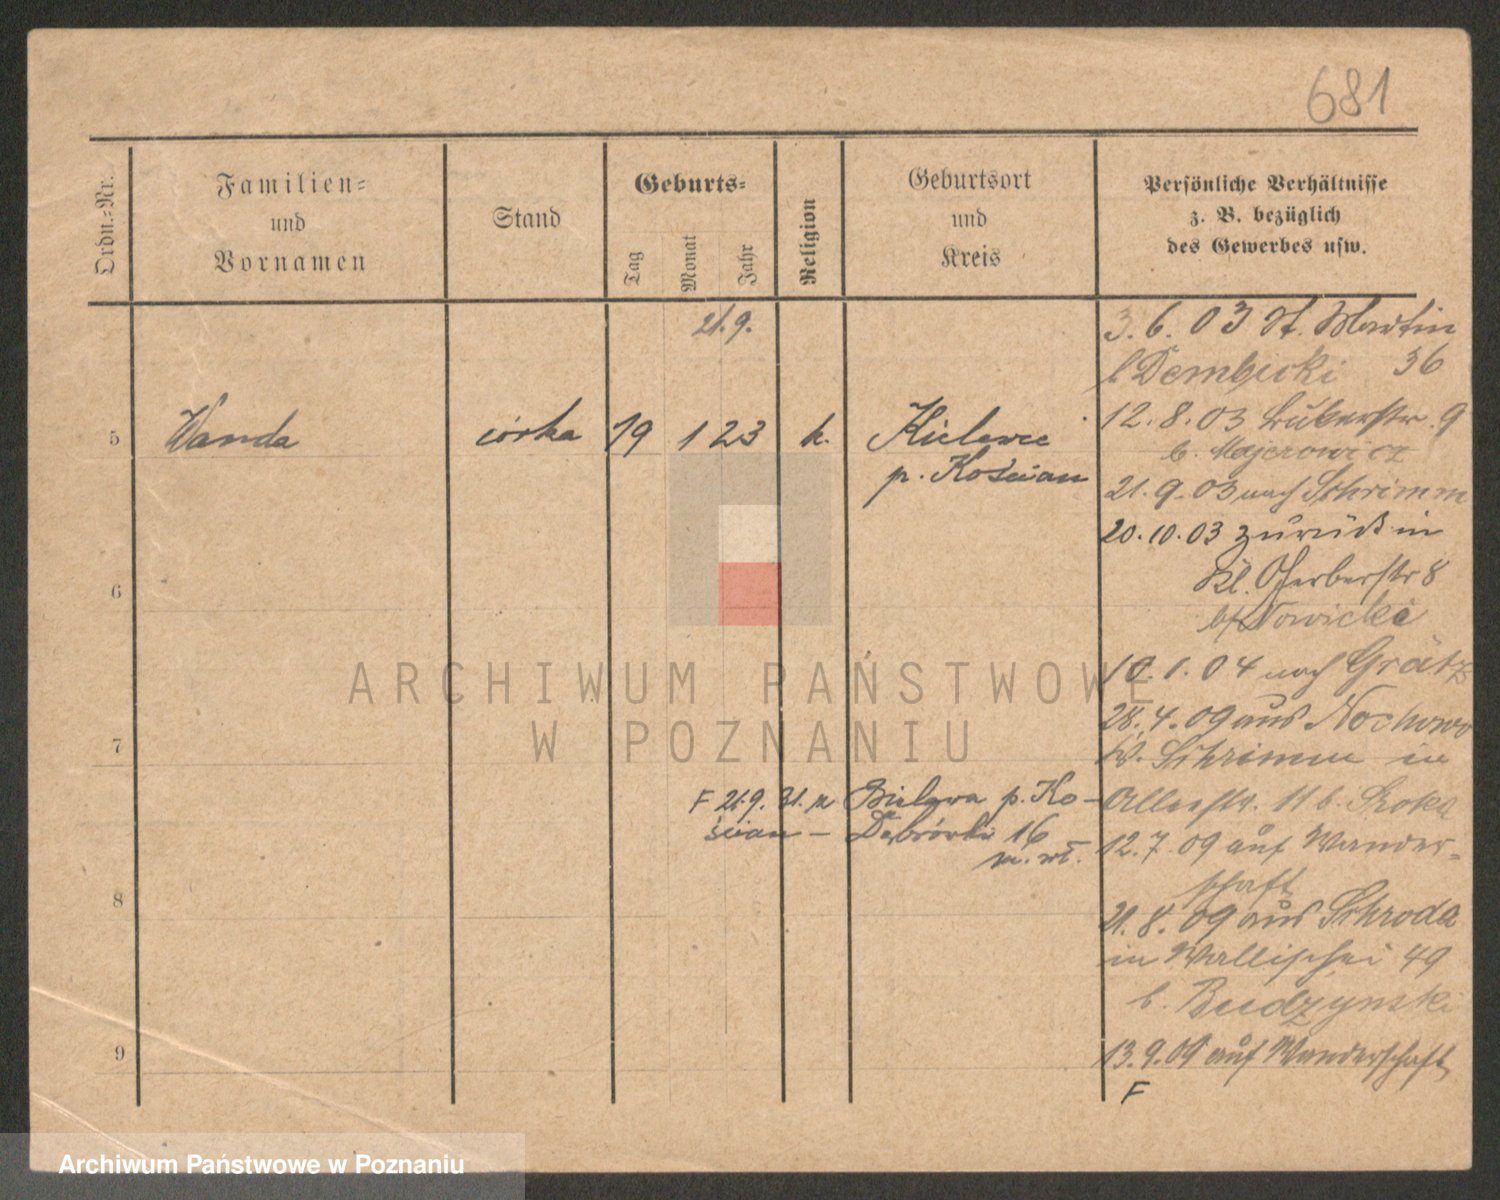 681
Ordn.-Nr.
Familien-
und
Vornamen
Stand
Geburts-
Tag
Monat
Jahr
Religion
Geburtsort
und
Kreis
Persönliche Verhältnisse
z. B. bezüglich
des Gewerbes usw.
21.9.
3.6.03 St. Martin
b Dembicki 36
12.8.03
b. Majerowicz
5 Wanda córka 19 1 23 k.
p. Kościan
21.9.03 nach Schrimm
20.10.03 zurück in
Kl. Gerberstr 8
b/ Nowicki
6
10.1.04 nach Grätz
28.4.09 aus Nochowo
Kr. Schrimm in
7
F 21.9.31. z Bielawa p. Ko-
ścian - Dąbrówki 16
m. wł.
11 b.
12.7.09 auf Wander-
schaft
21.8.09 aus Schroda
in Wallischei 49
b. Budzynski
8
13.9.09 auf Wanderschaft
F
9
ARCHIWUM PAŃSTWOWE
W POZNANIU
Archiwum Państwowe w Poznaniu